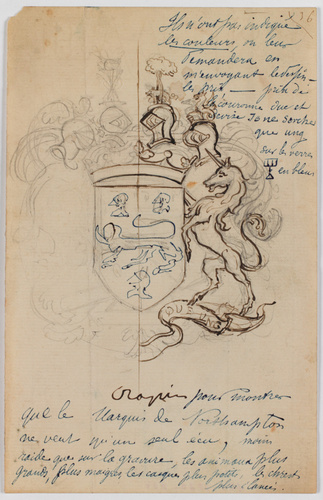 136
Ils n'ont pas indiqué
les couleurs, on leur
demandera en
m'envoyant le dessin
le prix — près de
la couronne duc et
que ung
sur les verres
en bleu
Croquis pour montrer
que le Marquis de Northampton
ne veut qu'un seul écu, moins
raide que sur la gravure, les animaux plus
grands, plus maigres, les casques plus petits,
plus élancés.